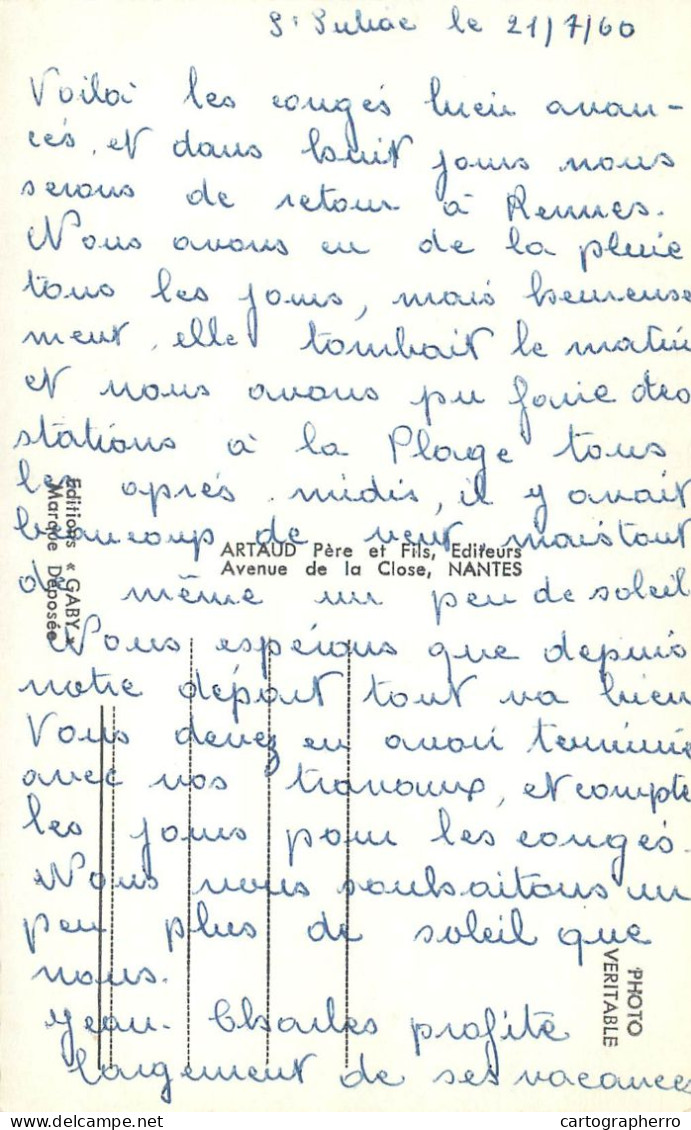 St Suliac le 21/7/60
Voilà les congés bien avan-
cés, et dans huit jours nous
serons de retour à Rennes.
Nous avons eu de la pluie
tous les jours, mais heureuse
ment, elle tombait le matin
et nous avons pu faire des
stations à la Plage tous
les après midis, il y avait
beaucoup de vent mais tout
de même un peu de soleil
Nous espérons que depuis
notre départ tout va bien
Vous devez en avoir terminé
avec vos travaux, et compte
les jours pour les congés.
Nous vous souhaitons un
peu plus de soleil que
nous.
Jean-Charles profite
largement de ses vacances
Editions « GABY »
Marque Déposée
ARTAUD Père et Fils, Editeurs
Avenue de la Close, NANTES
PHOTO
VERITABLE
cartographerro